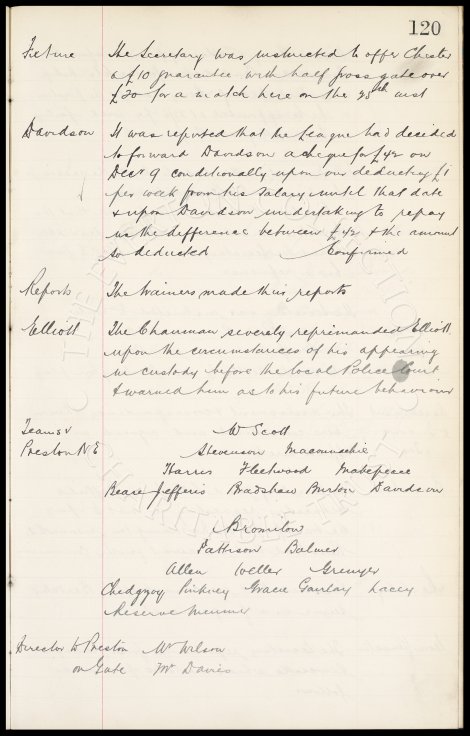 120
Fixture The Secretary was instructed to offer Chester
a £10 guarantee with half gross gate over
£20 for a match here on the 25th inst
Davidson It was reported that the League had decided
to forward Davidson a cheque for £42 on
Decr 9 conditionally upon our deducting £1
per week from his salary until that date
& upon Davidson undertaking to repay
us the difference between £42 & the amount
so deducted Confirmed
Reports The trainers made their reports
Elliott The Chairman severely reprimanded Elliott
upon the circumstances of his appearing
in custody before the local Police Court
& warned him as to his future behaviour
Teams v W Scott
Preston N E Stevenson Maconnachie
Harris Fleetwood Makepeace
Beare Jefferis Bradshaw Burton Davidson
Bromilow
Pattison Balmer
Allan Weller Grenyer
Chedgzoy Pinkney Gracie Gourlay Lacey
Reserve
Director to Preston Mr Wilson
on Gate Mr Davies